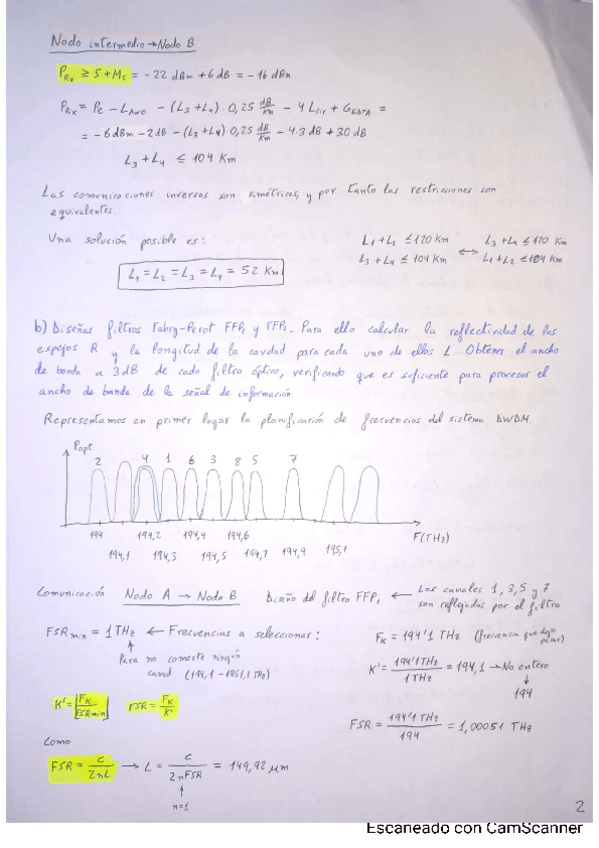 Nodo intermedio → Nodo B
P_Rx ≥ S + Ms = - 22 dBm + 6 dB = - 16 dBm
P_Rx = Pe - L_AWG - (L3 + L4) · 0,25 dB/Km - 4 Lcir + G_EDFA =
= - 6 dBm - 2 dB - (L3 + L4) 0,25 dB/Km - 4·3 dB + 30 dB
L3 + L4 ≤ 104 Km
Las comunicaciones inversas son simétricas, y por tanto las restricciones son
equivalentes.
Una solución posible es:
L1 + L2 ≤ 120 Km
L3 + L4 ≤ 104 Km
↔
L3 + L4 ≤ 120 Km
L1 + L2 ≤ 104 Km
L1 = L2 = L3 = L4 = 52 Km
b) Diseñar filtros Fabry-Perot FFP1 y FFP2. Para ello calcular la reflectividad de los
espejos R y la longitud de la cavidad para cada uno de ellos L. Obtener el ancho
de banda a 3 dB de cada filtro óptico, verificando que es suficiente para procesar el
ancho de banda de la señal de información
Representamos en primer lugar la planificación de frecuencias del sistema DWDM
Popt
2 4 1 6 3 8 5 7
194 194,2 194,4 194,6
F(THz)
194,1 194,3 194,5 194,7 194,9 195,1
Comunicación Nodo A → Nodo B Diseño del filtro FFP1 ← Los canales 1, 3, 5 y 7
son reflejados por el filtro
FSRmin = 1 THz ← Frecuencias a seleccionar:
FK = 194'1 THz (frecuencia que dejo
pasar)
Para no comerte ningún
canal (194,1 - 1951,1 THz)
K' = 194'1 THz / 1 THz = 194,1 → No entero
↓
194
K' = ⌊FK / FSRmin⌋ FSR = FK / K'
FSR = 194'1 THz / 194 = 1,00051 THz
Como
FSR = c / 2nL → L = c / 2nFSR = 149,92 μm
↑
n=1
2
Escaneado con CamScanner